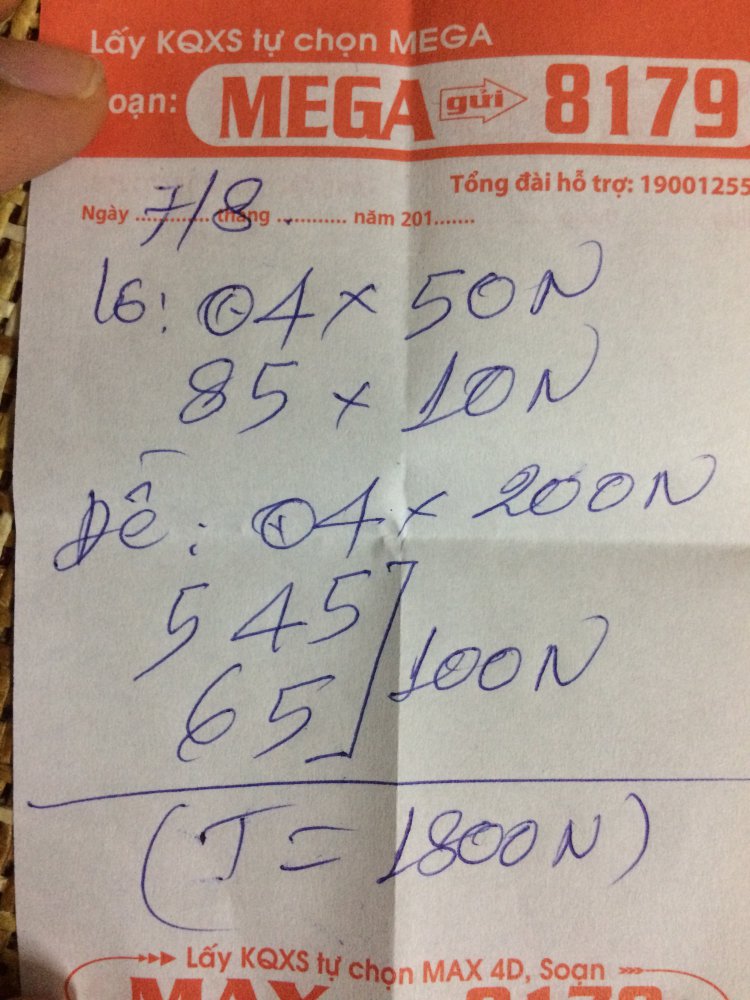 Lấy KQXS tự chọn MEGA
oạn: MEGA gửi 8179
Tổng đài hỗ trợ: 19001255
Ngày 7/8 tháng ........... năm 201.......
lô: 04 x 50N
85 x 10N
Đề: 04 x 200N
545
65 ] 100N
(T = 1800N)
Lấy KQXS tự chọn MAX 4D, Soạn
MAX 8179